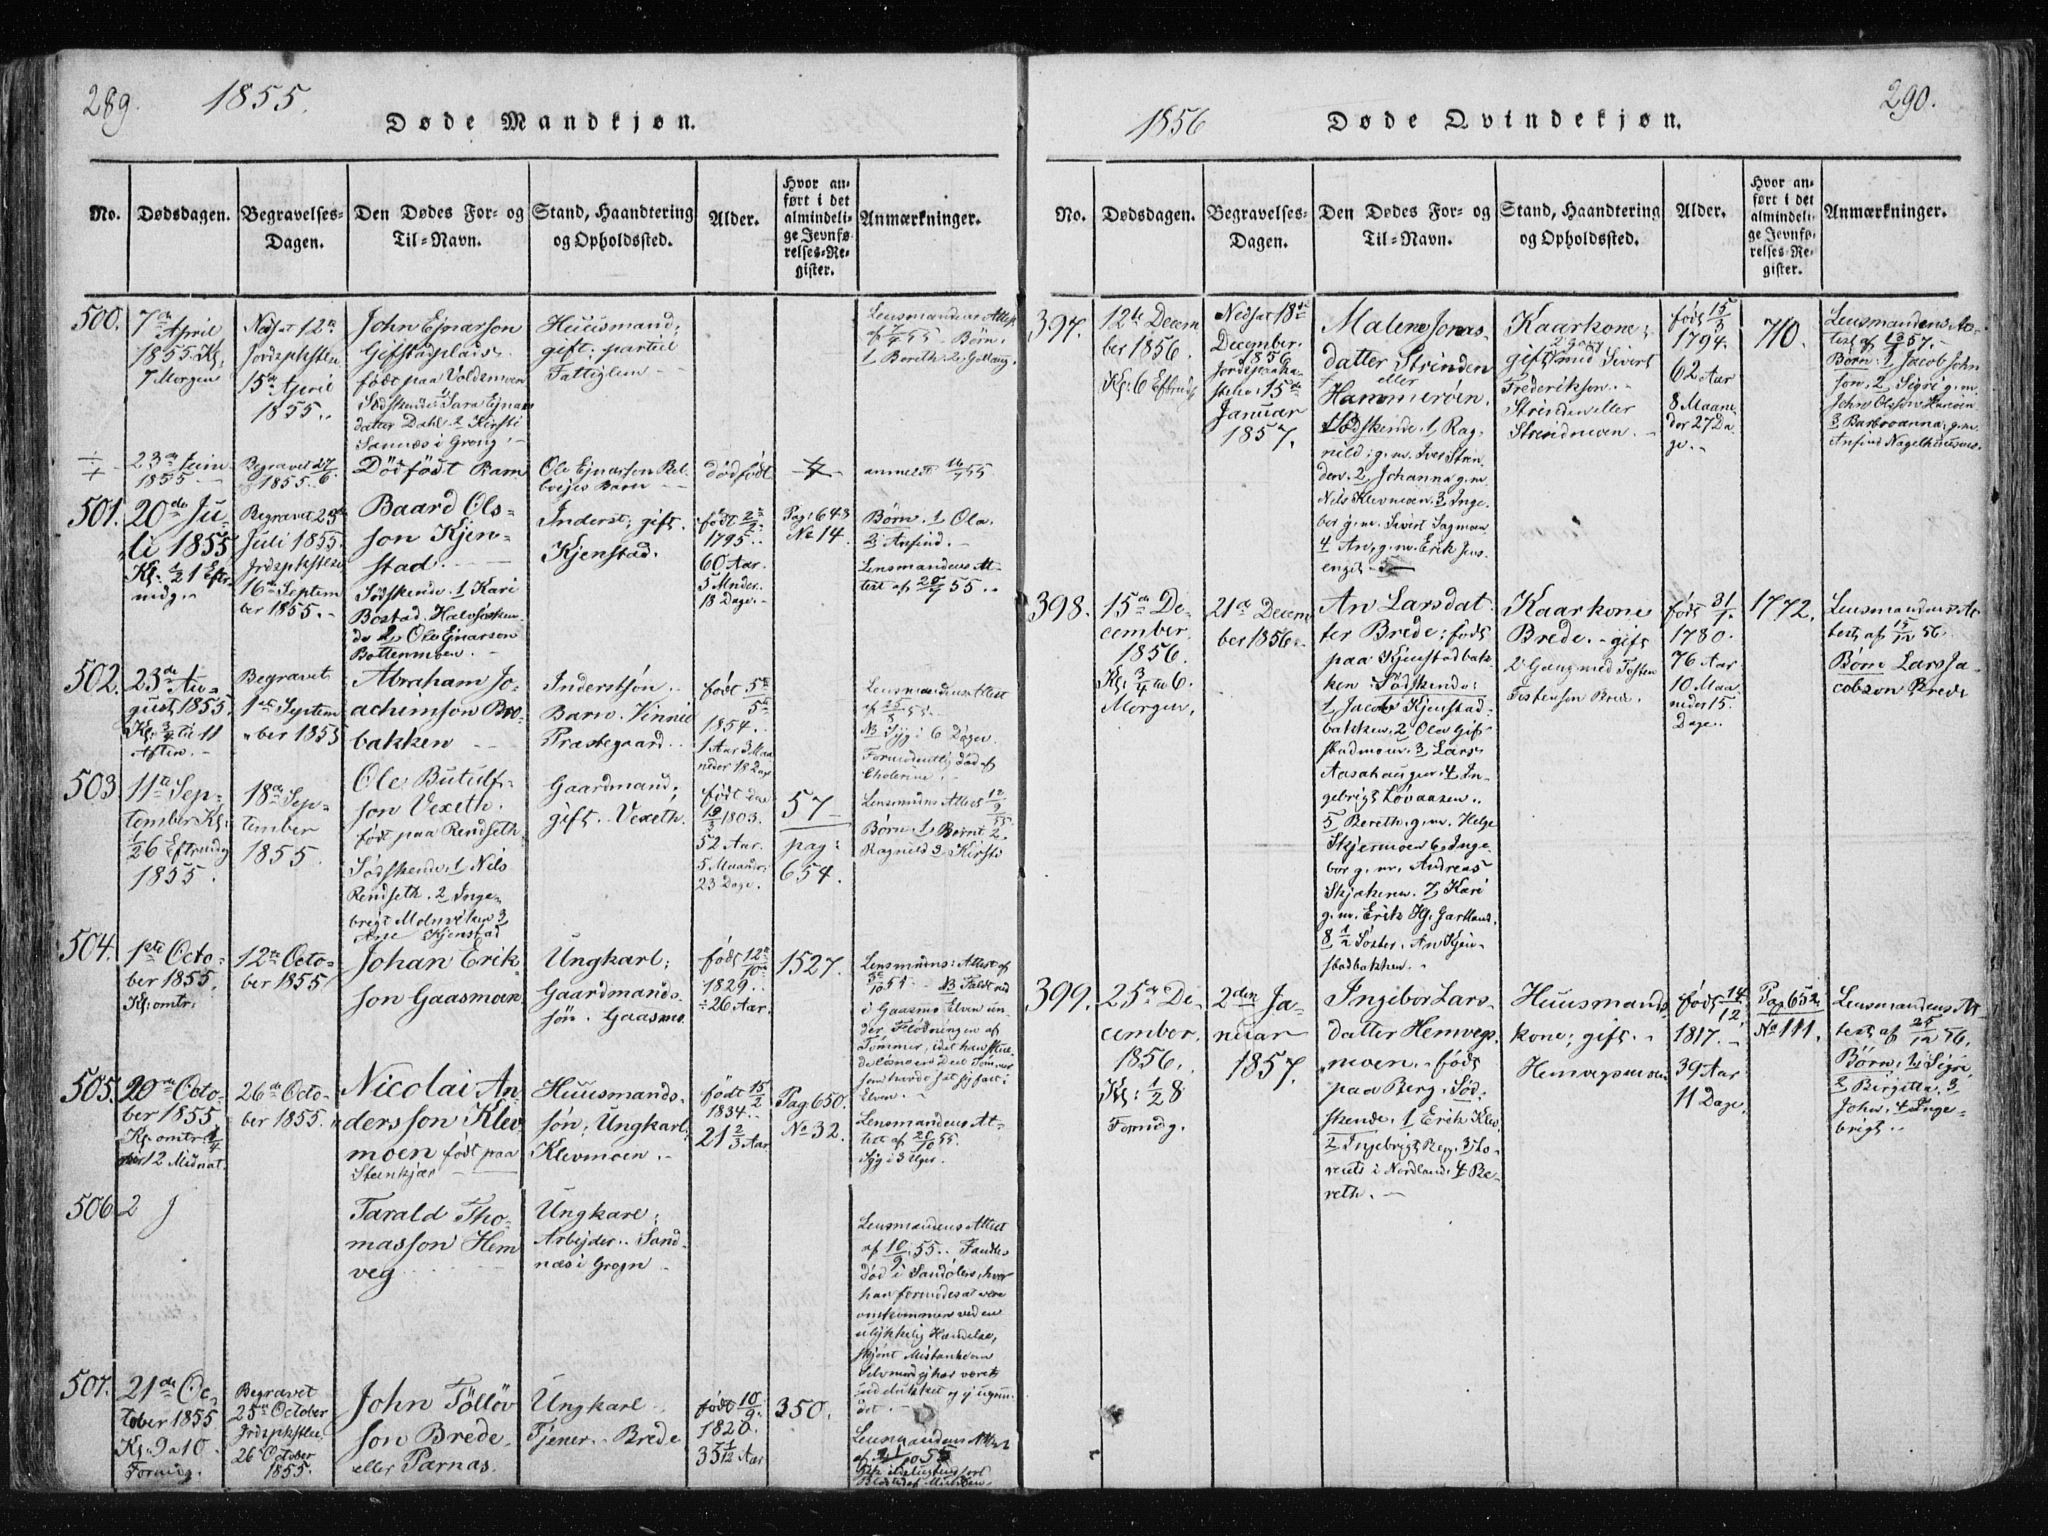 289.
1855.
Døde Mandkjøn.
No.
Dødsdagen.
Begravelses-
Dagen.
Den Dødes For- og
Til-Navn.
Stand, Haandtering
og Opholdssted.
Alder.
Hvor an-
ført i det
almindeli-
ge Jevnfø-
relses-Re-
gister.
Anmærkninger.
500.
7de April
1855. Kl:
7 Morgen
Nedsat 12te
15de April
1855.
John Ejnarson
Gifstadplads
født paa Voldsmoen
Sødskende 1 Sara Ejnars
datter Dahl. 2 Kirsti
Sannæs i Grong.
Huusmand;
gift; partiel
Fattiglem
Lensmandens Attest
af 7/4 55. Børn:
1 Bereth. 2
23de Juni
1855
Begravet 27/6
1855.
Dødfødt Barn
Ole Ejnarson Bel-
Barn
dødfødt
anmeldt 16/7 55
501.
20de Ju-
li 1855
Kl: 1/2 1 Efter
midg.
Begravet 29de
Juli 1855.
Jrdspkstelse
16de Septem
ber 1855.
Baard Ols-
son Kjen-
stad.
Sødskende. 1 Kari
Bostad. Halvsøsken-
de 2 Ole Ejnarson
Bottenmoen.
Inderst; gift.
Kjenstad.
født 2/2
1795.
60 Aar.
5 Mnder.
18 Dage.
Pag: 648
No 14.
Børn. 1 Ola.
2 Anfind.
Lensmandens At-
test af 20/7 55.
502.
23de Au-
gust 1855.
Kl: 3/4 til 11
Aften.
Begravet
1ste Septem
ber 1855
Abraham Jo-
achimson Bro-
bakken
Inderstsøn.
Barn. Vinnie
Præstegaard.
født 5te
1854.
1 Aar 3 Maa
neder 18 Dage
Lensmandens Attest
af 25/8 55.
NB Syg i 6 Dager.
Formodentlig død af
Cholerine.
503
11te Sep-
tember Kl:
1/2 6 Eftrmdg
1855.
18de Sep-
tember
1855.
Ole Butulf-
son Vexeth.
født paa Rendseth.
Sødskende. 1 Nils
Rendseth. 2 Inge-
brigt Molmviken 3
Ane Kjenstad
Gaardmand;
gift. Vexeth.
født den
18/3 1803.
52 Aar.
5 Maander
23 Dage.
57
pag:
654.
Lensmdns Attest 12/9 55
Børn. 1 Bernt. 2.
Ragnild 3 Kirsti
504.
1ste Octo-
ber 1855.
Kl: omtr.
12te Octo-
ber 1855
Johan Erik-
son Gaasmoen
Ungkarl;
Gaardmands-
søn. Gaasmo.
født 12te
1829.
26 Aar.
1527.
Lensmdns: Attest af
NB Faldt ned
i Gaasmo Elven un-
der Flødningen af
Tømmer, idet han skul-
de løsne en Deel Tømmer
som havde sat sig fast i
Elven.
505.
20de Octo-
ber 1855
Kl: omtr. 1/4
12 Midnat.
26de Octo-
ber 1855.
Nicolai An-
dersson Klev
moen født paa
Steenkjær
Huusmands-
søn; Ungkarl;
Klevmoen.
født 15/2
1834.
21 2/3 Aar
Pag 650.
No 32.
Lensmandens At-
test af 20/10 55.
Syg i 3 Uger.
506
2 J
Tarald Tho-
masson Hem
veg
Ungkarl;
Arbejder. Sand-
næs i Grogn
Lensmandens Attest
af 10/9 55. Fandtes
død i Sandølen, hvor
han formodes at være
omkommen ved en
ulykkelig Hændelse,
skjønt Mistanke om
Selvmord ej har været
udelukket og ej ugrun-
det.
507.
21de Oc-
tober 1855
Kl: 9 a 10
Formdg.
Begravet
25de October
Jrdspkstlse
26de October
1855.
John Tølløv
son Brede.
eller Parnas.
Ungkarl
Tjener. Brede
født 10/9
1820.
35 1/12 Aar
350.
Lensmandens Attest
290.
1856
Døde Qvindekjøn.
No.
Dødsdagen.
Begravelses-
Dagen.
Den Dødes For- og
Til-Navn.
Stand, Haandtering
og Opholdssted.
Alder.
Hvor an-
ført i det
almindeli-
ge Jevnfø-
relses-Re-
gister.
Anmærkninger.
397.
12te Decem
ber 1856.
Kl: 6 Eftrmdg
Nedsat 18de
December
1856
15de
Januar
1857.
Malene Jonas-
datter Strinden
eller
Hammerøen.
Sødskende. 1 Rag-
nild; g.m. Iver Strin-
den. 2 Johanna g.m.
Nils Klevmoen. 3 Inge-
bor g.m. Sivert Sagmoen
4 An, g.m. Erik Jns-
enget.
Kaarkone;
gift 2 Gang med Sivert
Frederikson.
Strinden eller
Strindmoen.
født 15/3
1794.
62 Aar
8 Maane
der 27 Da-
ge.
710.
Lensmandens At-
test af 13/1 57.
Børn: 1 Jacob John
son. 2 Sigri g.m.
John Olsson Harøen
3 Barbroanna; g.m.
Anfind Nagelhuusmo.
398.
15de De-
cember.
1856.
Kl: 3/4 til 6.
Morgen.
21de Decem-
ber 1856.
An Larsdat-
ter Brede; født
paa Kjenstadbak-
ken. Sødskende:
1 Jacob Kjenstad-
bakken. 2 Ola Gif-
stadmoen. 3 Lars
Aasahaugen. 4 In-
gebrigt Løvaasen.
5 Bereth. g.m. Helge
Skjermoen 6 Inge-
bor g.m. Andreas
Skjækeren. 7 Kari
g.m. Erik Hj. Gartland.
8 1/2 Søster. An Kjen-
stadbakken.
Kaarkone
Brede. gift
2 Gang med Tosten
Tostenson Brede.
født 31/1
1780.
76 Aar
10 Maa-
neder 15.
Dage.
1772.
Lensmandens At-
test af 15/12 56.
Børn Lars Ja-
cobson Brede
399.
25de De-
cember.
1856.
Kl: 1/2 8
Formdg.
2den Ja-
nuar
1857.
Ingebor Lars-
datter Hemvegs-
moen. født
paa Berg. Sød-
skende. 1 Erik Klev
2 Ingebrigt Berg. 3 Tho-
reus i Nordland. 4 Be-
reth.
Huusmands
kone; gift.
Hemvegsmoen
født 14/12
1817.
39 Aar
11 Dage.
Pag 652
No 111.
Lensmandens At-
test af 25/12 56.
Børn: 1 Sigri,
2 Birgitta. 3
John. 4 Inge-
brigt.